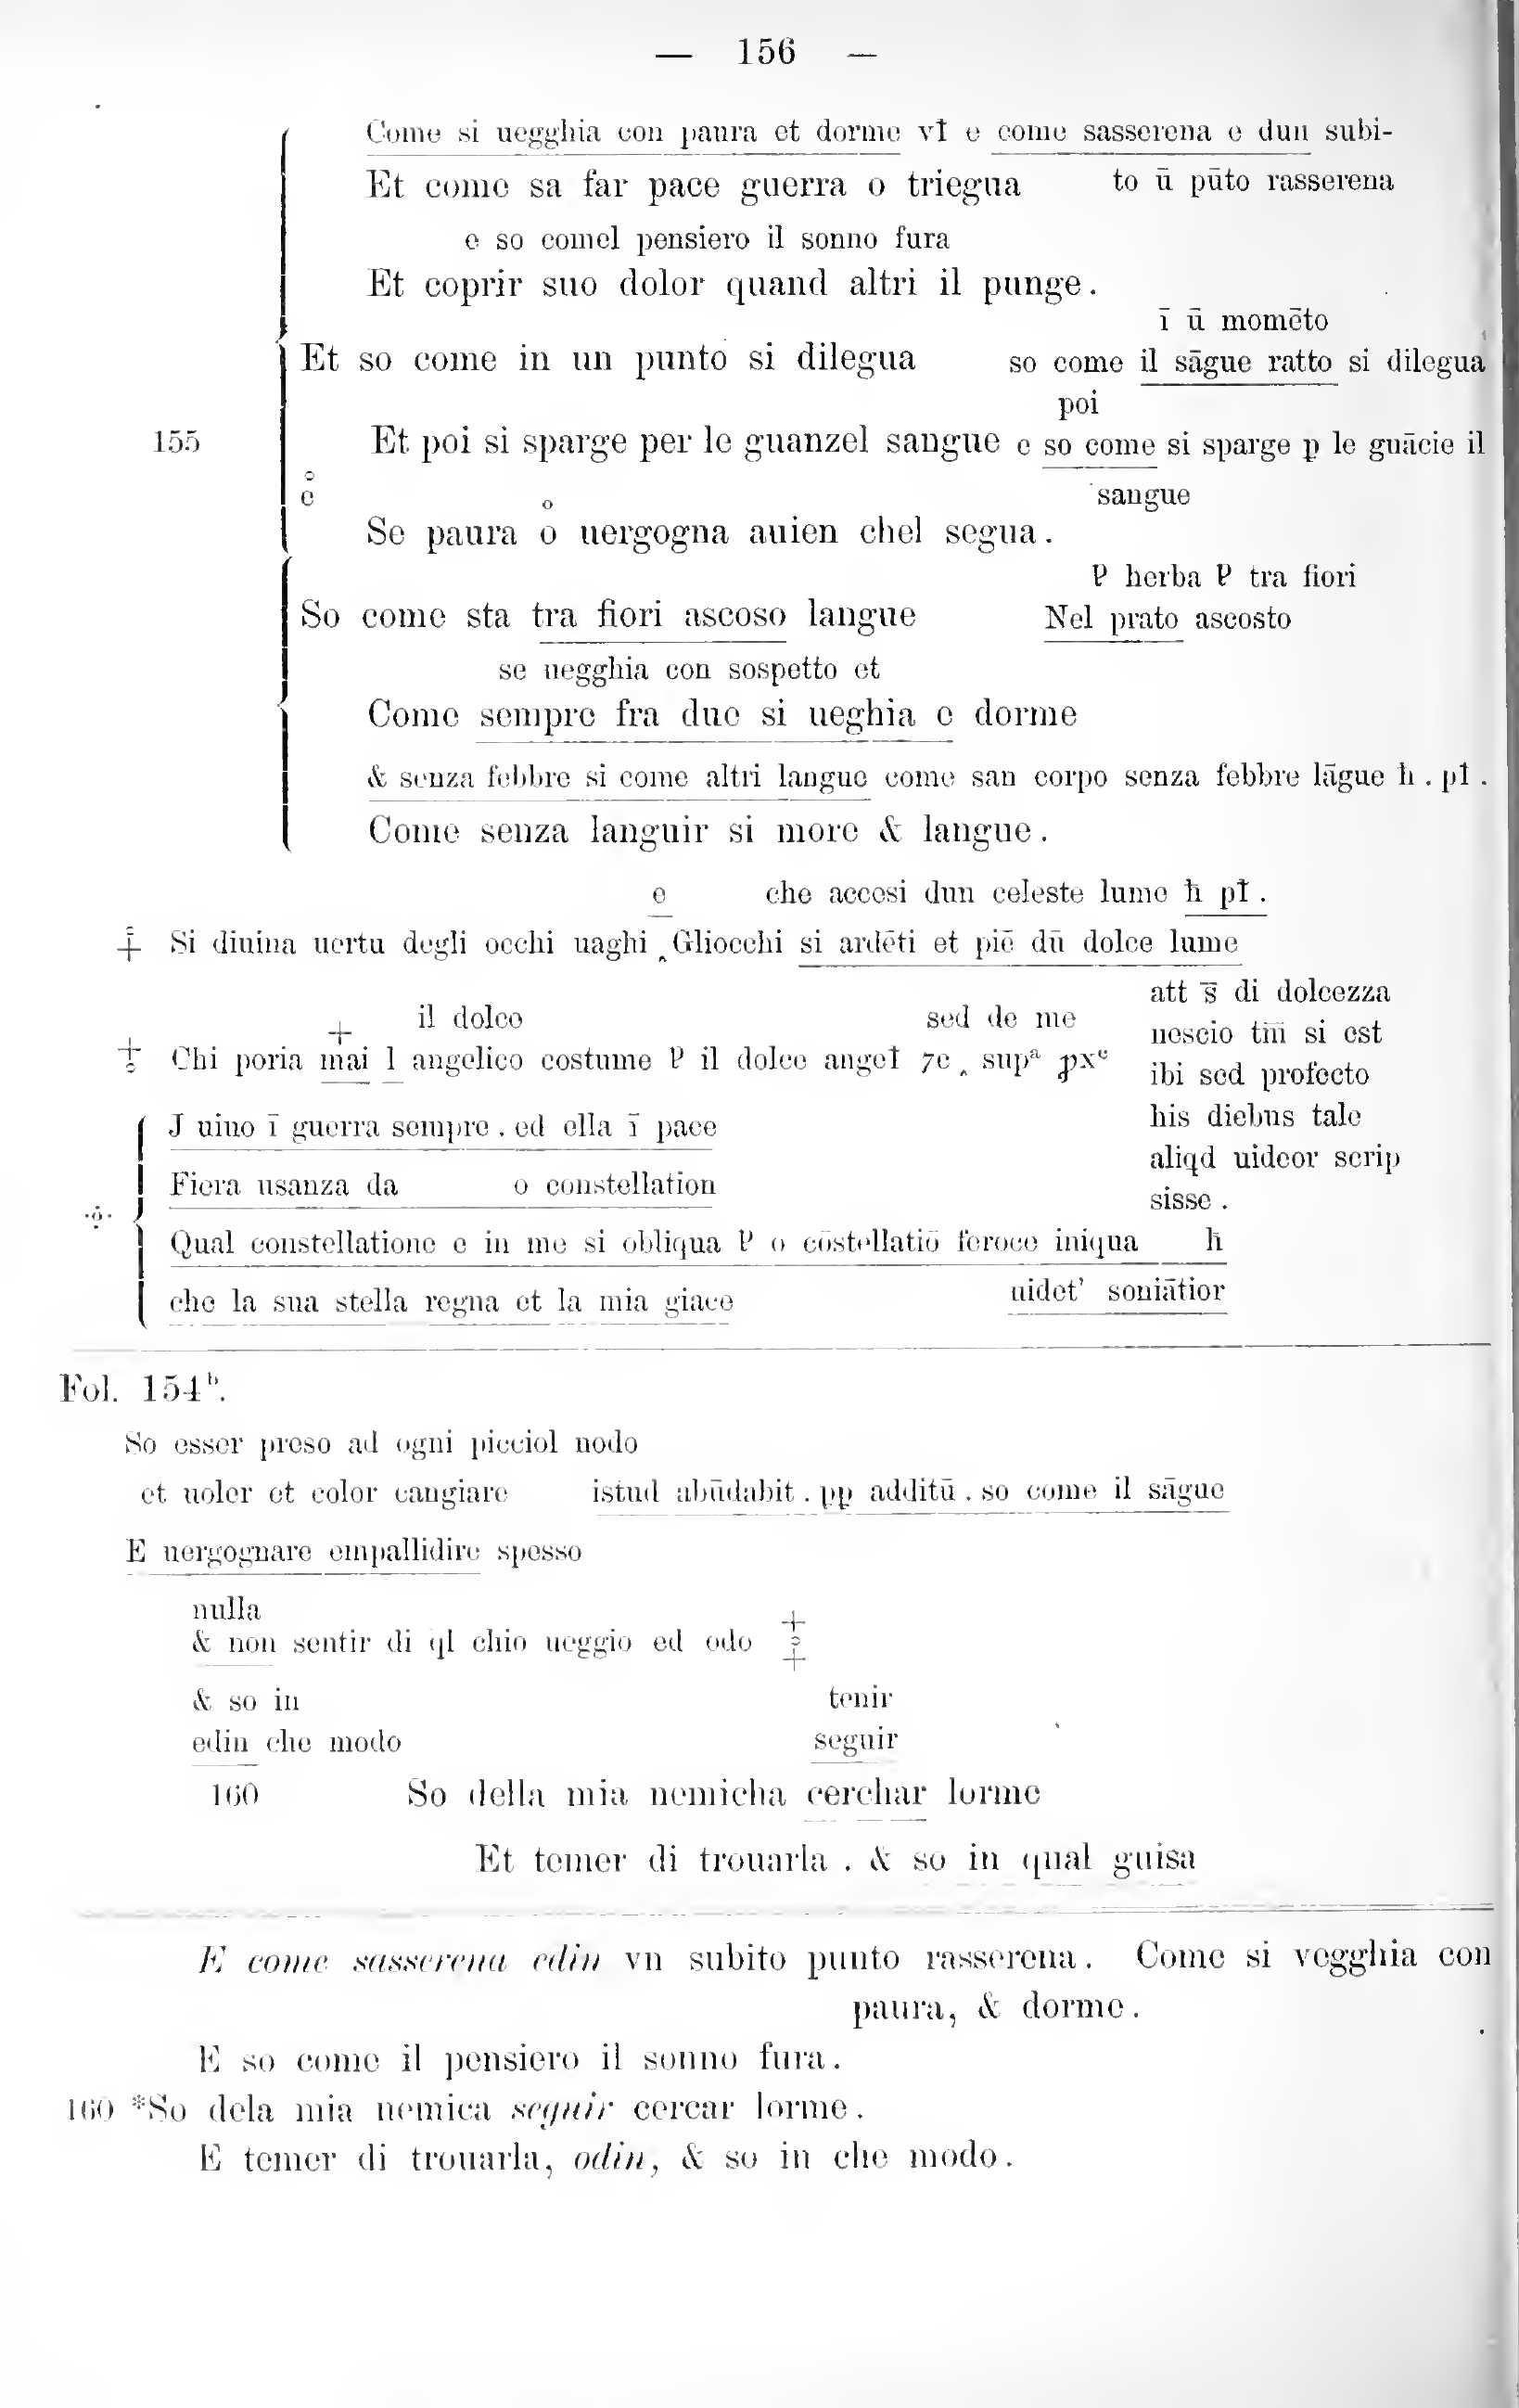 — 156 —
Come si uegghia con paura et dorme vƚ e come sasserena e dun subi-
Et come sa far pace guerra o triegua to ū pūto rasserena
e so comel pensiero il sonno fura
Et coprir suo dolor quand altri il punge.
ī ū momēto
Et so come in un punto si dilegua so come il sāgue ratto si dilegua
poi
155 Et poi si sparge per le guanzel sangue e so come si sparge p le guācie il
e sangue
Se paura o uergogna auien chel segua.
herba tra fiori
So come sta tra fiori ascoso langue Nel prato ascosto
se uegghia con sospetto et
Come sempre fra due si ueghia e dorme
& senza febbre si come altri langue come san corpo senza febbre lāgue ħ . pƚ .
Come senza languir si more & langue.
e che accesi dun celeste lume ħ pƚ .
Si diuina uertu degli occhi uaghi ‸Gliocchi si ardēti et piē dū dolce lume
att s̄ di dolcezza
+ il dolce sed de me nescio tm̄ si est
Chi poria mai l angelico costume il dolce angeƚ 7e ‸ supᵃ ꝓxᵉ ibi sed profecto
J uiuo ī guerra sempre . ed ella ī pace his diebus tale
aliqd uideor scrip
Fiera usanza da o constellation sisse .
Qual constellatione e in me si obliqua o cōstellatiō feroce iniqua ħ
che la sua stella regna et la mia giace uidet’ soniātior
Fol. 154ᵇ.
So esser preso ad ogni picciol nodo
et uoler et color cangiare istud abūdabit . pp additū . so come il sāgue
E uergognare empallidire spesso
nulla
& non sentir di ql chio ueggio ed odo
& so in tenir
edin che modo seguir
160 So della mia nemicha cerchar lorme
Et temer di trouarla . & so in qual guisa
E come sasserena edin vn subito punto rasserena. Come si vegghia con
paura, & dorme.
E so come il pensiero il sonno fura.
160 *So dela mia nemica seguir cercar lorme.
E temer di trouarla, odin, & so in che modo.